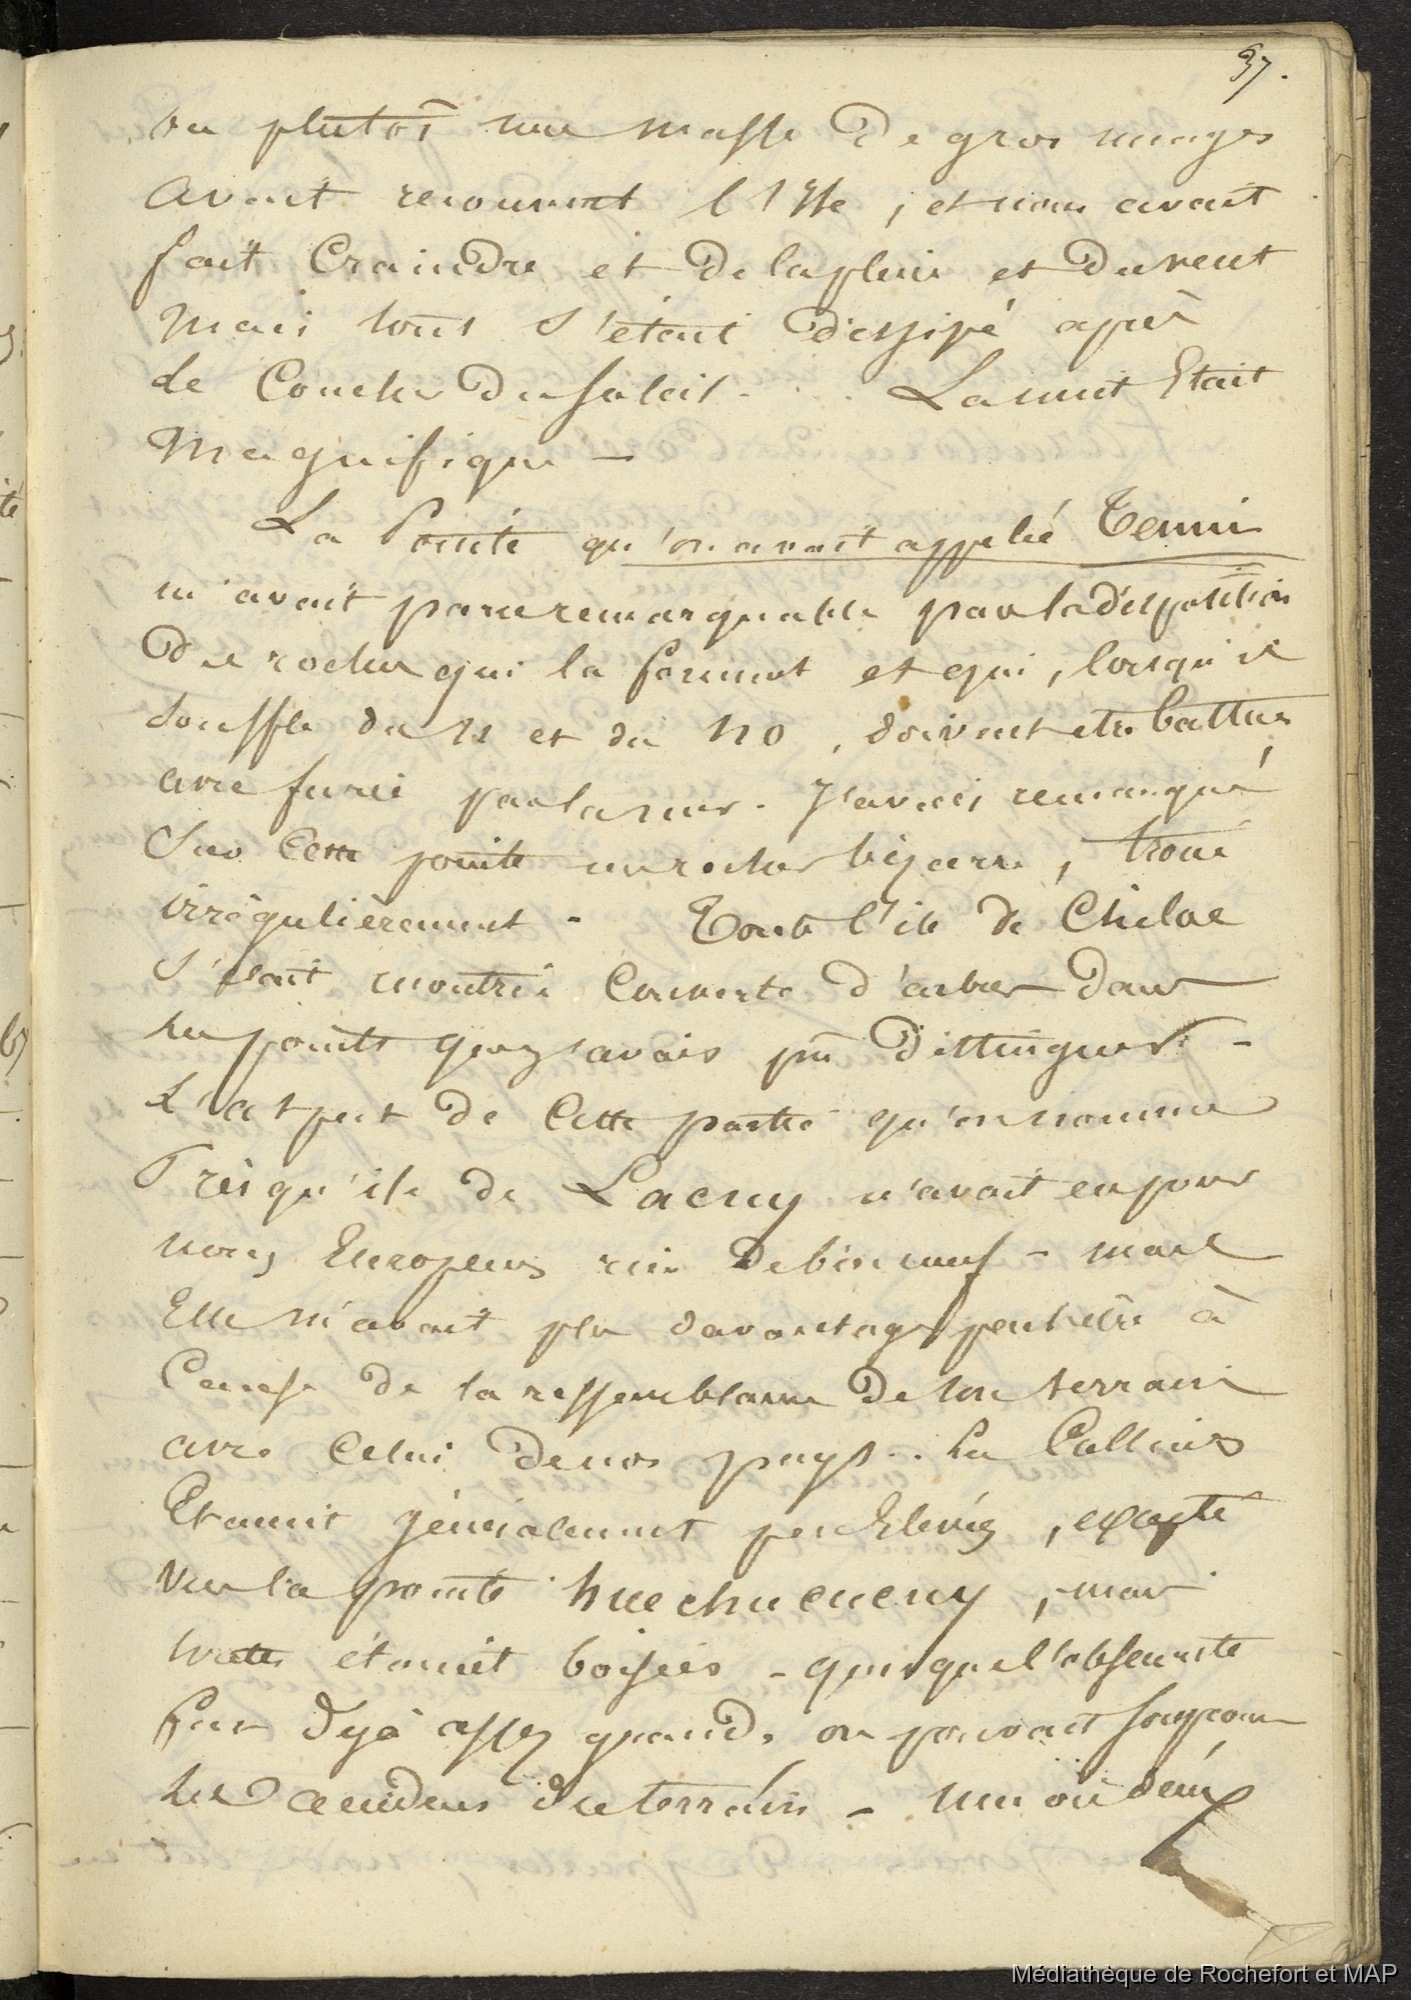 37.
ou plutôt une masse de gros nuages
avait recouvert l'Isle, et nous avait
fait Craindre et de la pluie et du vent
Mais tout s'était dissipé après
le Coucher du soleil. La nuit Etait
Magnifique –
La Pointe qu'on avait appelée Tenui
m'avait paru remarquable par la disposition
des rochers qui la forment et qui, lorsqu'il
souffle du N et du NO, doivent etre battus
avec furie par la mer. J'avais remarqué
Sur Cette pointe un rocher bizarre, troué
irrégulièrement – Toute l'ile de Chiloe
s'était montrée Couverte d'arbres dans
les points que j'avais pû distinguer –
L'aspect de Cette partie qu'on nomme
Presqu'ile de Lacuy n'avait eu pour
nous Européens rien de bien neuf – mais
Elle m'avait plu davantage peut être à
Cause de la ressemblance de son terrain
avec Celui de nos pays.. Les Collines
Etaient généralement peu Elevées, excepté
vers la pointe huechucucuy, mais
toutes étaient boisées – quoique l'obscurité
fut déjà assez grande, on pouvait soupçonner
les accidens du terrain – un ou deux
Médiathèque de Rochefort et MAP